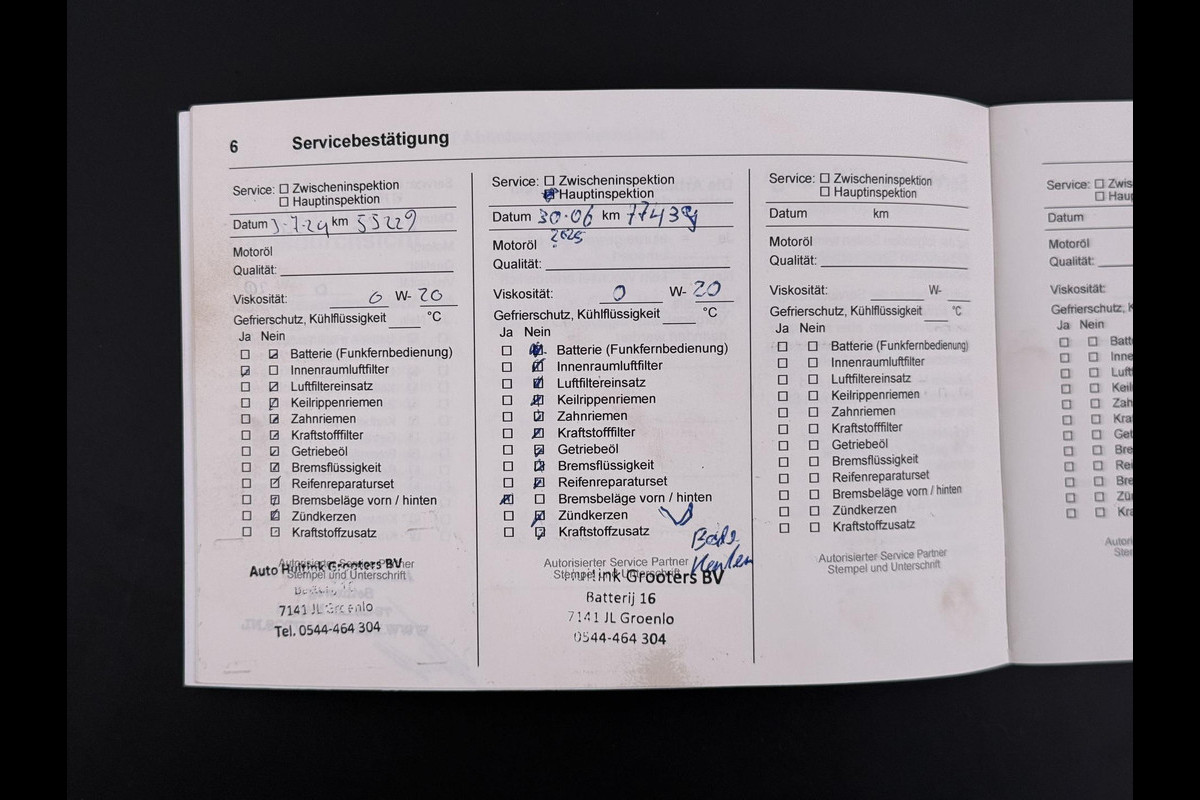 6 Servicebestätigung
Service: ☐ Zwischeninspektion
☐ Hauptinspektion
Datum 3-7-24 km 55229
Motoröl
Qualität:
Viskosität: 0 W- 20
Gefrierschutz, Kühlflüssigkeit °C
Ja Nein
Batterie (Funkfernbedienung)
Innenraumluftfilter
Luftfiltereinsatz
Keilrippenriemen
Zahnriemen
Kraftstofffilter
Getriebeöl
Bremsflüssigkeit
Reifenreparaturset
Bremsbeläge vorn / hinten
Zündkerzen
Kraftstoffzusatz
Autorisierter Service Partner
Stempel und Unterschrift
Auto Huitink Grooters BV
7141 JL Groenlo
Tel. 0544-464 304
Service: ☐ Zwischeninspektion
Hauptinspektion
Datum 30-06 km 77439
2025
Motoröl
Qualität:
Viskosität: 0 W- 20
Gefrierschutz, Kühlflüssigkeit °C
Ja Nein
Batterie (Funkfernbedienung)
Innenraumluftfilter
Luftfiltereinsatz
Keilrippenriemen
Zahnriemen
Kraftstofffilter
Getriebeöl
Bremsflüssigkeit
Reifenreparaturset
Bremsbeläge vorn / hinten
Zündkerzen
Kraftstoffzusatz
Autorisierter Service Partner
Stempel und Unterschrift
Grooters BV
Batterij 16
7141 JL Groenlo
0544-464 304
Service: ☐ Zwischeninspektion
☐ Hauptinspektion
Datum km
Motoröl
Qualität:
Viskosität: W-
Gefrierschutz, Kühlflüssigkeit °C
Ja Nein
Batterie (Funkfernbedienung)
Innenraumluftfilter
Luftfiltereinsatz
Keilrippenriemen
Zahnriemen
Kraftstofffilter
Getriebeöl
Bremsflüssigkeit
Reifenreparaturset
Bremsbeläge vorn / hinten
Zündkerzen
Kraftstoffzusatz
Autorisierter Service Partner
Stempel und Unterschrift
Service: ☐ Zwis
☐ Haup
Datum
Motoröl
Qualität:
Viskosität:
Gefrierschutz, K
Ja Nein
Batt
Inne
Luft
Keil
Zah
Kra
Get
Bre
Rei
Bre
Zün
Kra
Autori
Ster